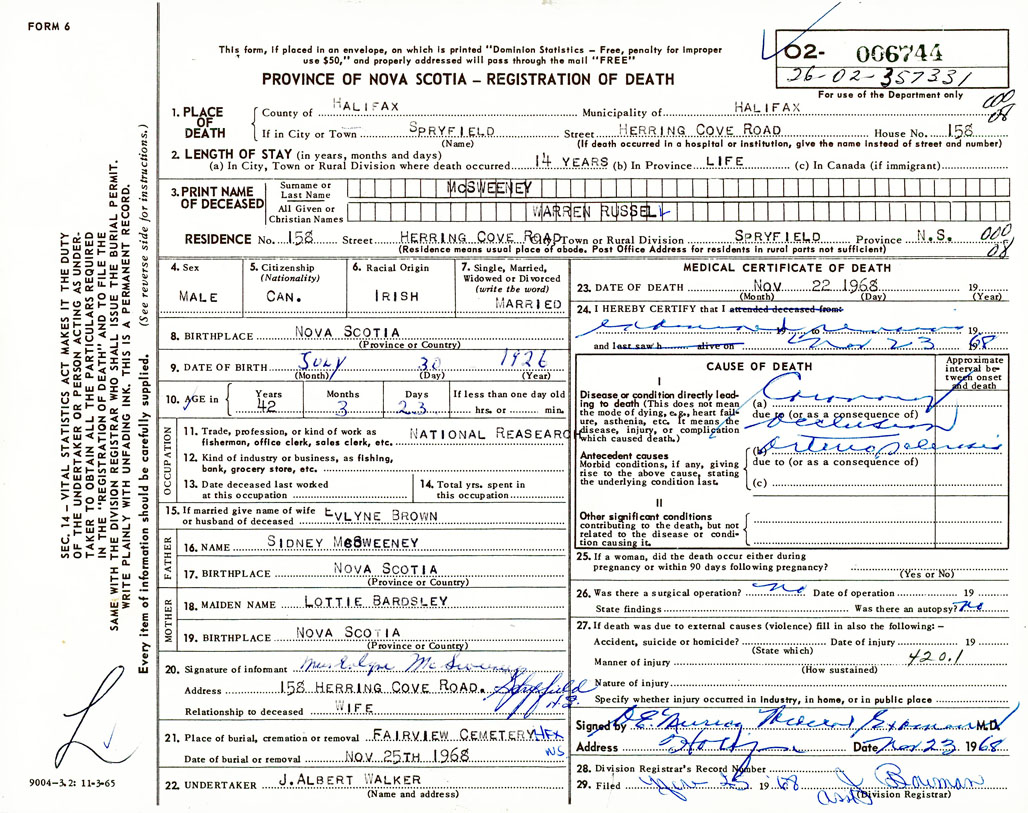 FORM 6
This form, if placed in an envelope, on which is printed "Dominion Statistics – Free, penalty for improper
use $50," and properly addressed will pass through the mail "FREE"
PROVINCE OF NOVA SCOTIA – REGISTRATION OF DEATH
02- 006744
26-02-357331
For use of the Department only
000
08
1. PLACE OF DEATH
County of HALIFAX Municipality of HALIFAX
If in City or Town SPRYFIELD Street HERRING COVE ROAD House No. 158
(Name) (If death occurred in a hospital or institution, give the name instead of street and number)
2. LENGTH OF STAY (in years, months and days)
(a) In City, Town or Rural Division where death occurred 14 YEARS (b) In Province LIFE (c) In Canada (if immigrant)
3. PRINT NAME OF DECEASED
Surname or Last Name McSWEENEY
All Given or Christian Names WARREN RUSSELL
RESIDENCE No. 158 Street HERRING COVE ROAD Town or Rural Division SPRYFIELD Province N.S. 000
08
(Residence means usual place of abode. Post Office Address for residents in rural parts not sufficient)
4. Sex
MALE
5. Citizenship
(Nationality)
CAN.
6. Racial Origin
IRISH
7. Single, Married,
Widowed or Divorced
(write the word)
MARRIED
8. BIRTHPLACE NOVA SCOTIA
(Province or Country)
9. DATE OF BIRTH July 30 1926
(Month) (Day) (Year)
10. AGE in Years Months Days If less than one day old
42 3 23 hrs. or min.
OCCUPATION
11. Trade, profession, or kind of work as
fisherman, office clerk, sales clerk, etc. NATIONAL REASEARCH
12. Kind of industry or business, as fishing,
bank, grocery store, etc.
13. Date deceased last worked
at this occupation
14. Total yrs. spent in
this occupation
15. If married give name of wife
or husband of deceased EVLYNE BROWN
FATHER
16. NAME SIDNEY McSWEENEY
17. BIRTHPLACE NOVA SCOTIA
(Province or Country)
MOTHER
18. MAIDEN NAME LOTTIE BARDSLEY
19. BIRTHPLACE NOVA SCOTIA
(Province or Country)
20. Signature of informant McSweeney
Address 158 HERRING COVE ROAD. Spryfield
Relationship to deceased WIFE
21. Place of burial, cremation or removal FAIRVIEW CEMETERY HFX
NS
Date of burial or removal NOV 25TH 1968
22. UNDERTAKER J.ALBERT WALKER
(Name and address)
MEDICAL CERTIFICATE OF DEATH
23. DATE OF DEATH NOV 22 1968 19
(Month) (Day) (Year)
24. I HEREBY CERTIFY that I attended deceased from
examined remains 19
and last saw h alive on Nov 23 1968
CAUSE OF DEATH
Approximate
interval be-
tween onset
and death
I
Disease or condition directly lead-
ing to death (This does not mean
the mode of dying, e.g., heart fail-
ure, asthenia, etc. It means the
disease, injury, or complication
which caused death.)
(a) Coronary
due to (or as a consequence of)
occlusion
Antecedent causes
Morbid conditions, if any, giving
rise to the above cause, stating
the underlying condition last.
(b) Arteriosclerosis
due to (or as a consequence of)
(c)
II
Other significant conditions
contributing to the death, but not
related to the disease or condi-
tion causing it.
25. If a woman, did the death occur either during
pregnancy or within 90 days following pregnancy?
(Yes or No)
26. Was there a surgical operation? no Date of operation 19
State findings Was there an autopsy? no
27. If death was due to external causes (violence) fill in also the following: –
Accident, suicide or homicide? Date of injury 19
(State which)
Manner of injury 420.1
(How sustained)
Nature of injury
Specify whether injury occurred in industry, in home, or in public place
Signed by D.E. Murray Medical Examiner M.D.
Address Date Nov 23 1968
28. Division Registrar's Record Number
29. Filed 25 1968 J Bowman
(Division Registrar)
SEC. 14 – VITAL STATISTICS ACT MAKES IT THE DUTY
OF THE UNDERTAKER OR PERSON ACTING AS UNDER-
TAKER TO OBTAIN ALL THE PARTICULARS REQUIRED
IN THE "REGISTRATION OF DEATH" AND TO FILE THE
SAME WITH THE DIVISION REGISTRAR WHO SHALL ISSUE THE BURIAL PERMIT.
WRITE PLAINLY WITH UNFADING INK. THIS IS A PERMANENT RECORD.
Every item of information should be carefully supplied. (See reverse side for instructions.)
9004–3.2: 11-3-65